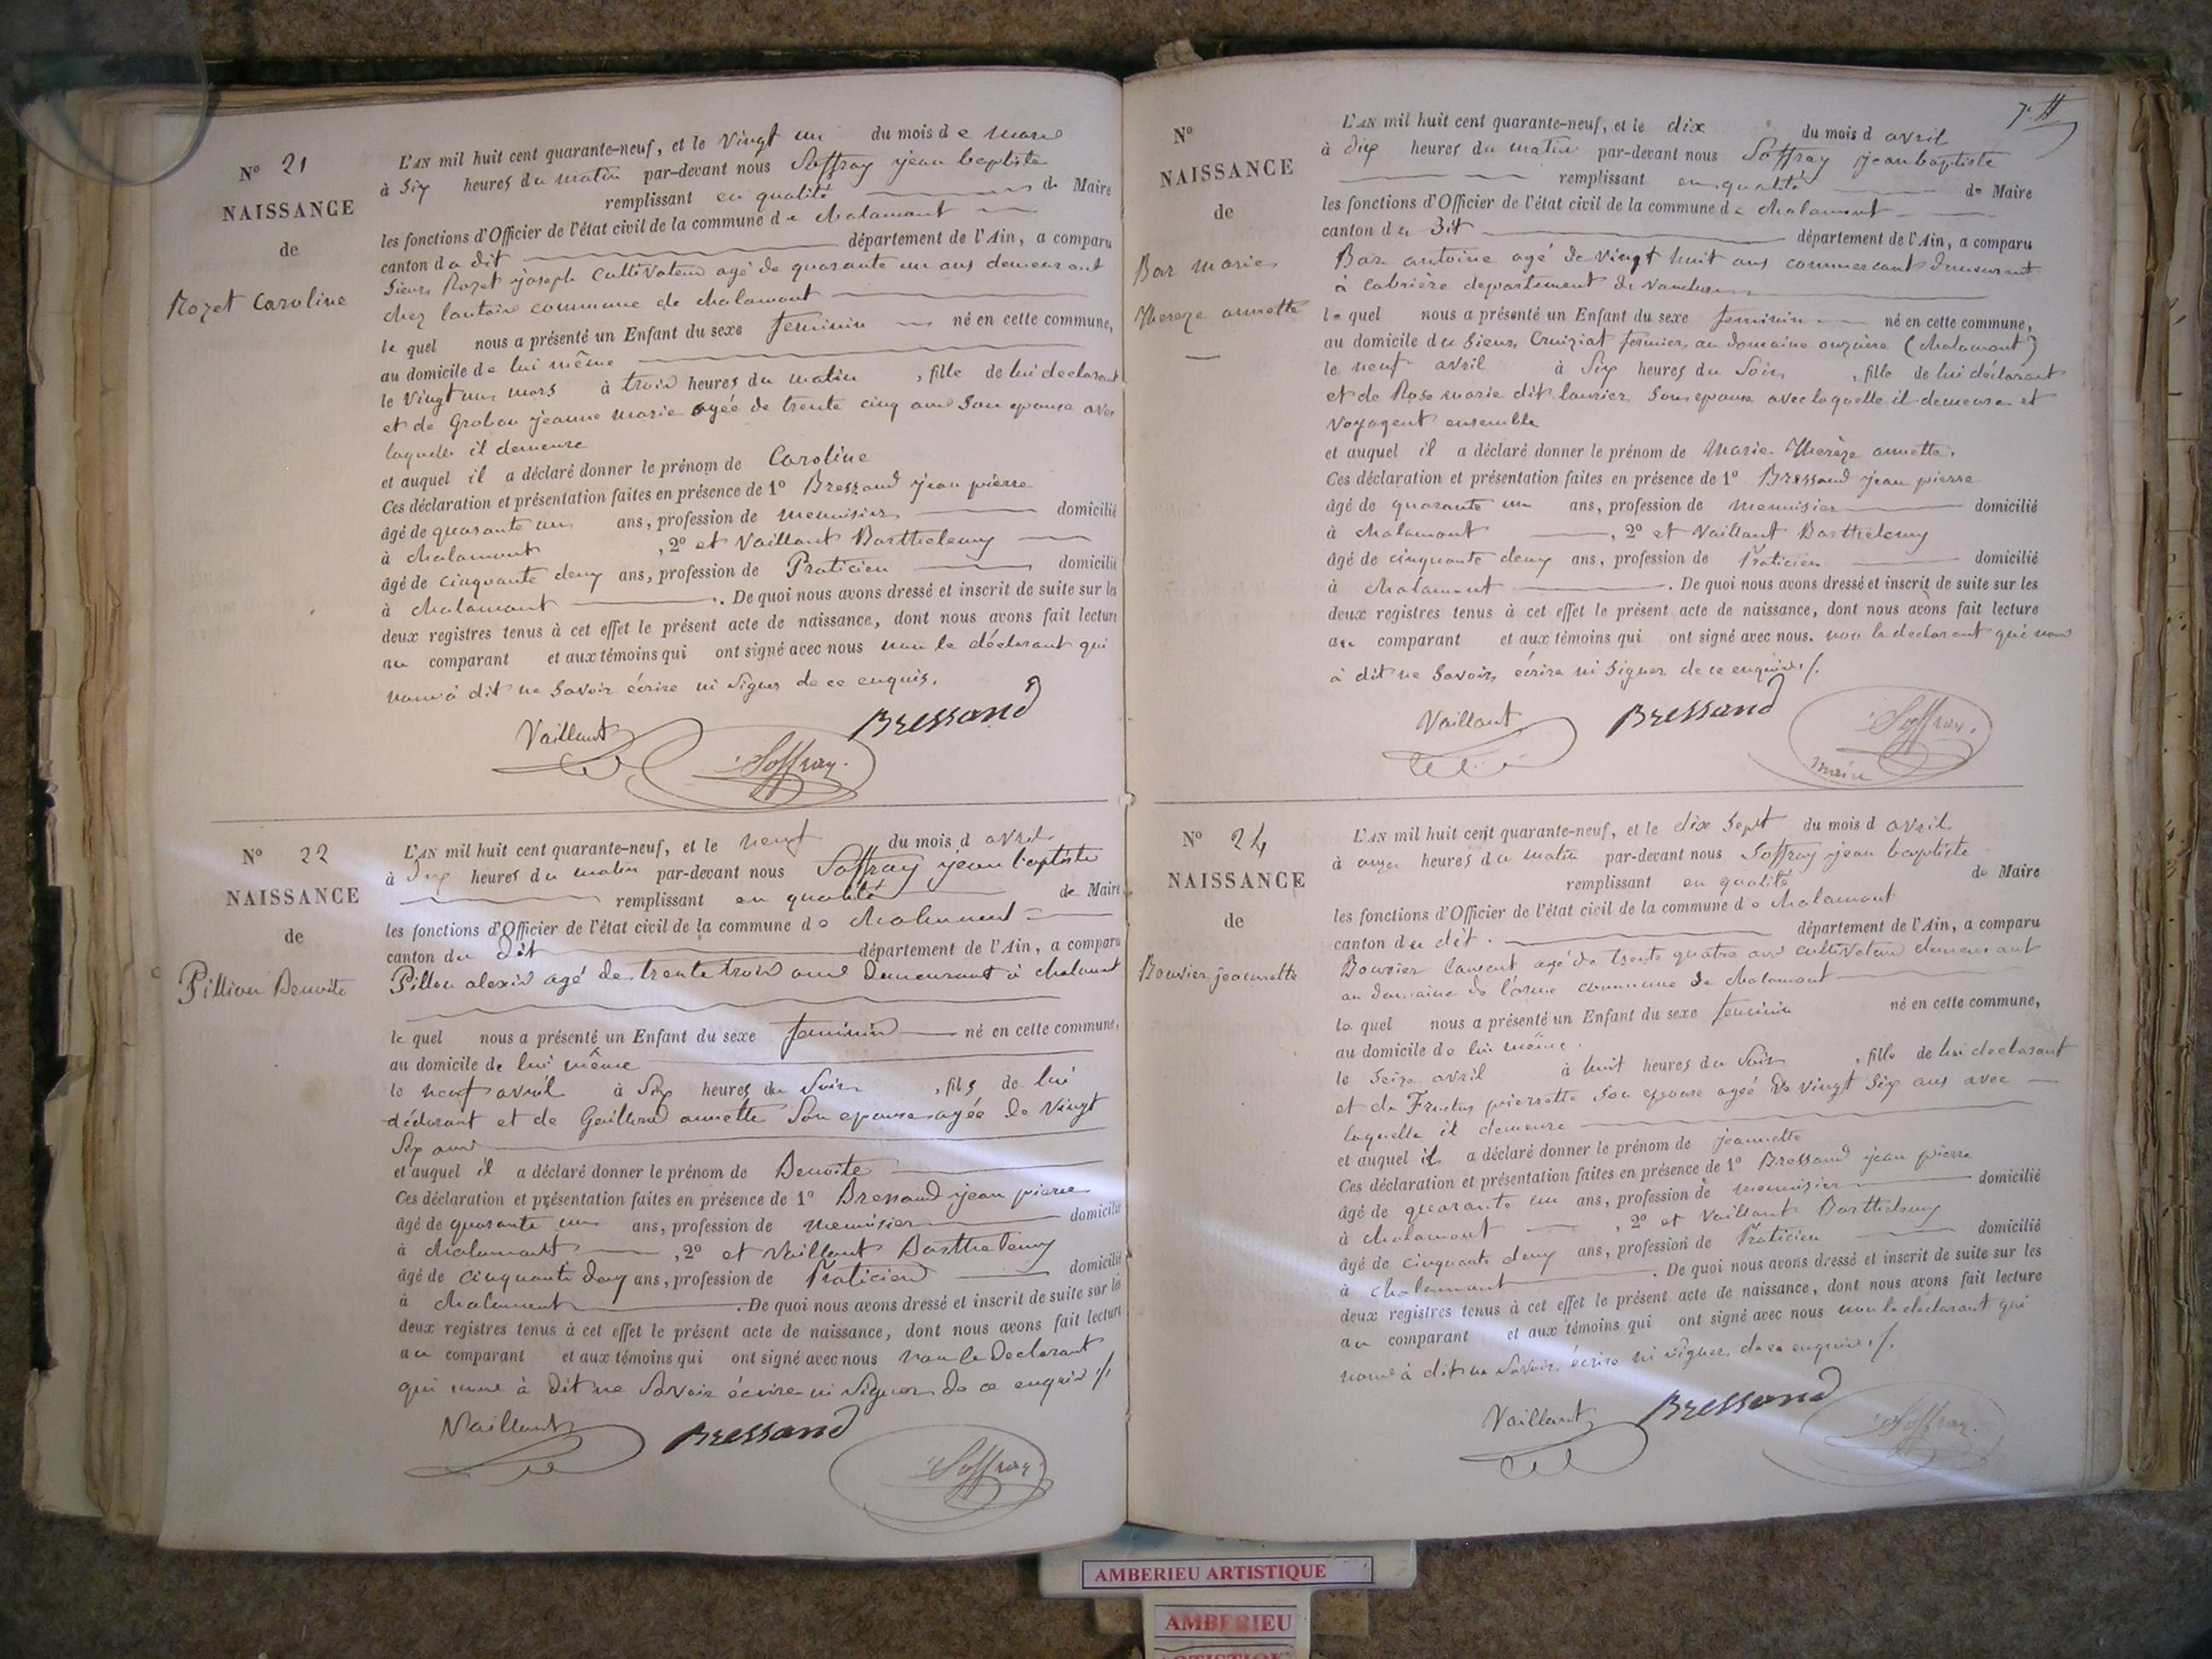 N° 21
NAISSANCE
de
Rozet Caroline
L'AN mil huit cent quarante-neuf, et le Vingt un du mois de mars
à Six heures du matin par-devant nous Soffray jean baptiste
remplissant en qualité de Maire
les fonctions d'Officier de l'état civil de la commune de chalamont
canton du dit département de l'Ain, a comparu
Sieur Rozet joseph Cultivateur agé de quarante un ans demeurant
chez lantoine commune de chalamont
le quel nous a présenté un Enfant du sexe feminin né en cette commune,
au domicile de lui même
le Vingt un mars à trois heures du matin, fille de lui declarant
et de Grobon jeanne marie agée de trente cinq ans Son epouse avec
laquelle il demeure
et auquel il a déclaré donner le prénom de Caroline
Ces déclaration et présentation faites en présence de 1° Bressand jean pierre
âgé de quarante un ans, profession de menuisier domicilié
à chalamont, 2° et Vaillant Barthelemy
âgé de cinquante deux ans, profession de Praticien domicilié
à chalamont. De quoi nous avons dressé et inscrit de suite sur les
deux registres tenus à cet effet le présent acte de naissance, dont nous avons fait lecture
au comparant et aux témoins qui ont signé avec nous non le déclarant qui
nous à dit ne Savoir écrire ni Signer de ce enquis.
Vaillant Soffray Bressand
N° 22
NAISSANCE
de
Pillion Benoite
L'AN mil huit cent quarante-neuf, et le neuf du mois d avril
à heures du matin par-devant nous Soffray jean baptiste
remplissant en qualité de Maire
les fonctions d'Officier de l'état civil de la commune de chalamont
canton du dit département de l'Ain, a comparu
Pillon alexis agé de trente trois ans Demeurant à chalamont
le quel nous a présenté un Enfant du sexe feminin né en cette commune,
au domicile de lui même
le neuf avril à Six heures du Soir, fils de lui
déclarant et de Gaillard annette Son epouse agée de Vingt
Six ans
et auquel il a déclaré donner le prénom de Benoite
Ces déclaration et présentation faites en présence de 1° Bressand jean pierre
âgé de quarante un ans, profession de menuisier domicilié
à chalamont, 2° et Vaillant Barthelemy
âgé de cinquante deux ans, profession de Praticien domicilié
à chalamont. De quoi nous avons dressé et inscrit de suite sur les
deux registres tenus à cet effet le présent acte de naissance, dont nous avons fait lecture
au comparant et aux témoins qui ont signé avec nous non le Declarant
qui nous à dit ne Savoir écrire ni Signer de ce enquis
Vaillant Bressand Soffray
N°
NAISSANCE
de
Bar marie
Thereze annette
L'AN mil huit cent quarante-neuf, et le dix du mois d avril
à dix heures du matin par-devant nous Soffray jean baptiste
remplissant en qualité de Maire
les fonctions d'Officier de l'état civil de la commune de chalamont
canton du Dit département de l'Ain, a comparu
Bar antoine agé de Vingt huit ans commercant demeurant
à Cabrière departement de
le quel nous a présenté un Enfant du sexe feminin né en cette commune,
au domicile du Sieur Cruiziat fermier au domaine (chalamont)
le neuf avril à Six heures du Soir, fille de lui déclarant
et de Rose marie dit laurier Son epouse avec laquelle il demeure et
Voyagent ensemble
et auquel il a déclaré donner le prénom de Marie Thereze annette.
Ces déclaration et présentation faites en présence de 1° Bressand jean pierre
âgé de quarante un ans, profession de menuisier domicilié
à chalamont, 2° et Vaillant Barthelemy
âgé de cinquante deux ans, profession de Praticien domicilié
à chalamont. De quoi nous avons dressé et inscrit de suite sur les
deux registres tenus à cet effet le présent acte de naissance, dont nous avons fait lecture
au comparant et aux témoins qui ont signé avec nous. non le declarant qui nous
à dit ne Savoir écrire ni Signer de ce enquis
Vaillant Bressand Soffray
maire
N° 24
NAISSANCE
de
Bouvier jeannette
L'AN mil huit cent quarante-neuf, et le dix Sept du mois d avril
à onze heures du matin par-devant nous Soffray jean baptiste
remplissant en qualité de Maire
les fonctions d'Officier de l'état civil de la commune de chalamont
canton du dit. département de l'Ain, a comparu
Bouvier laurent agé de trente quatre ans cultivateur demeurant
au domaine de lorme commune de chalamont
le quel nous a présenté un Enfant du sexe feminin né en cette commune,
au domicile de lui même.
le Seize avril à huit heures du Soir, fille de lui declarant
et de Fructus pierrette Son epouse agée de Vingt Six ans avec
laquelle il demeure
et auquel il a déclaré donner le prénom de jeannette
Ces déclaration et présentation faites en présence de 1° Bressand jean pierre
âgé de quarante un ans, profession de menuisier domicilié
à chalamont, 2° et Vaillant Barthelemy
âgé de cinquante deux ans, profession de Praticien domicilié
à chalamont. De quoi nous avons dressé et inscrit de suite sur les
deux registres tenus à cet effet le présent acte de naissance, dont nous avons fait lecture
au comparant et aux témoins qui ont signé avec nous non le déclarant qui
nous à dit ne Savoir écrire ni signer de ce enquis
Vaillant Bressand Soffray
AMBERIEU ARTISTIQUE
AMBERIEU